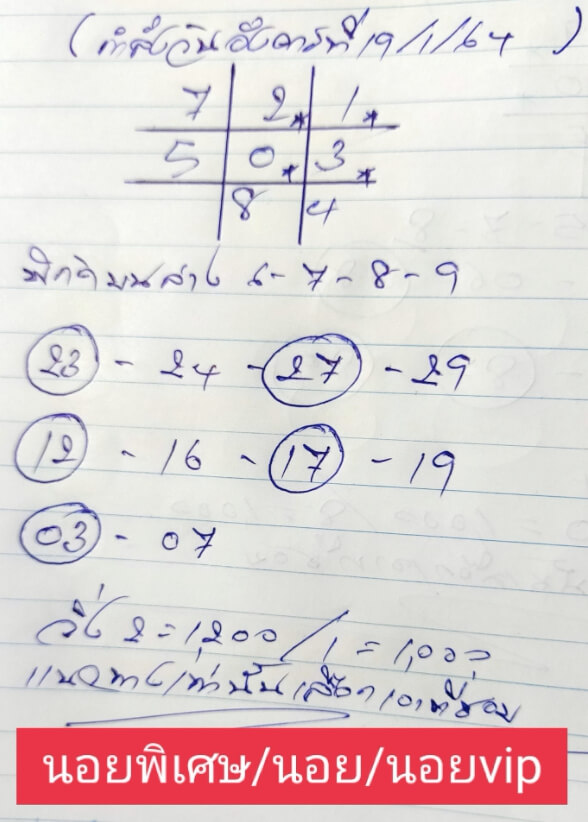 (คำสั่งวันอังคารที่ 19/1/64)
7 2* 1*
5 0* 3*
8 4
6-7-8-9
23 - 24 - 27 - 29
12 - 16 - 17 - 19
03 - 07
วิ่ง 2 = 1,200 / 1 = 1,000
แนวทางเท่านั้นเลือกเอาที่ชอบ
นอยพิเศษ/นอย/นอยvip